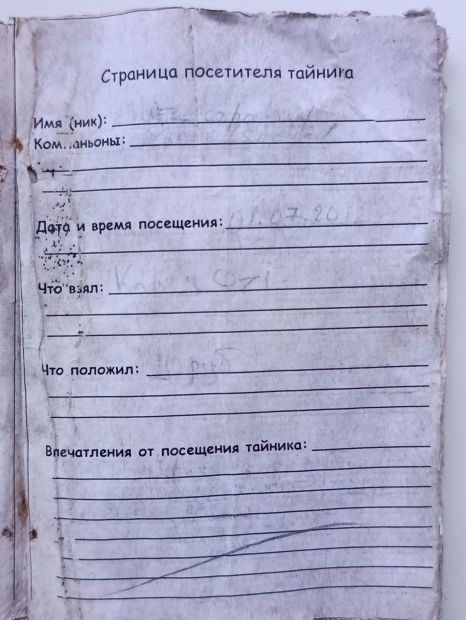 Страница посетителя тайника
Имя (ник):
Компаньоны:
Дата и время посещения: 08.07.2012
Что взял:
Что положил: 10 руб
Впечатления от посещения тайника: